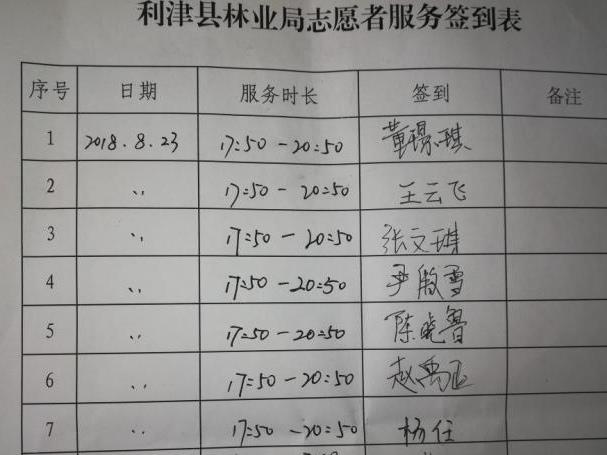 利津县林业局志愿者服务签到表
序号 日期 服务时长 签到 备注
1 2018.8.23 17:50-20:50 董璟琪
2 〃 17:50-20:50 王云飞
3 〃 17:50-20:50 张文琪
4 〃 17:50-20:50 尹殿雪
5 〃 17:50-20:50 陈晓鲁
6 〃 17:50-20:50 赵禹
7 〃 17:50-20:50 杨任